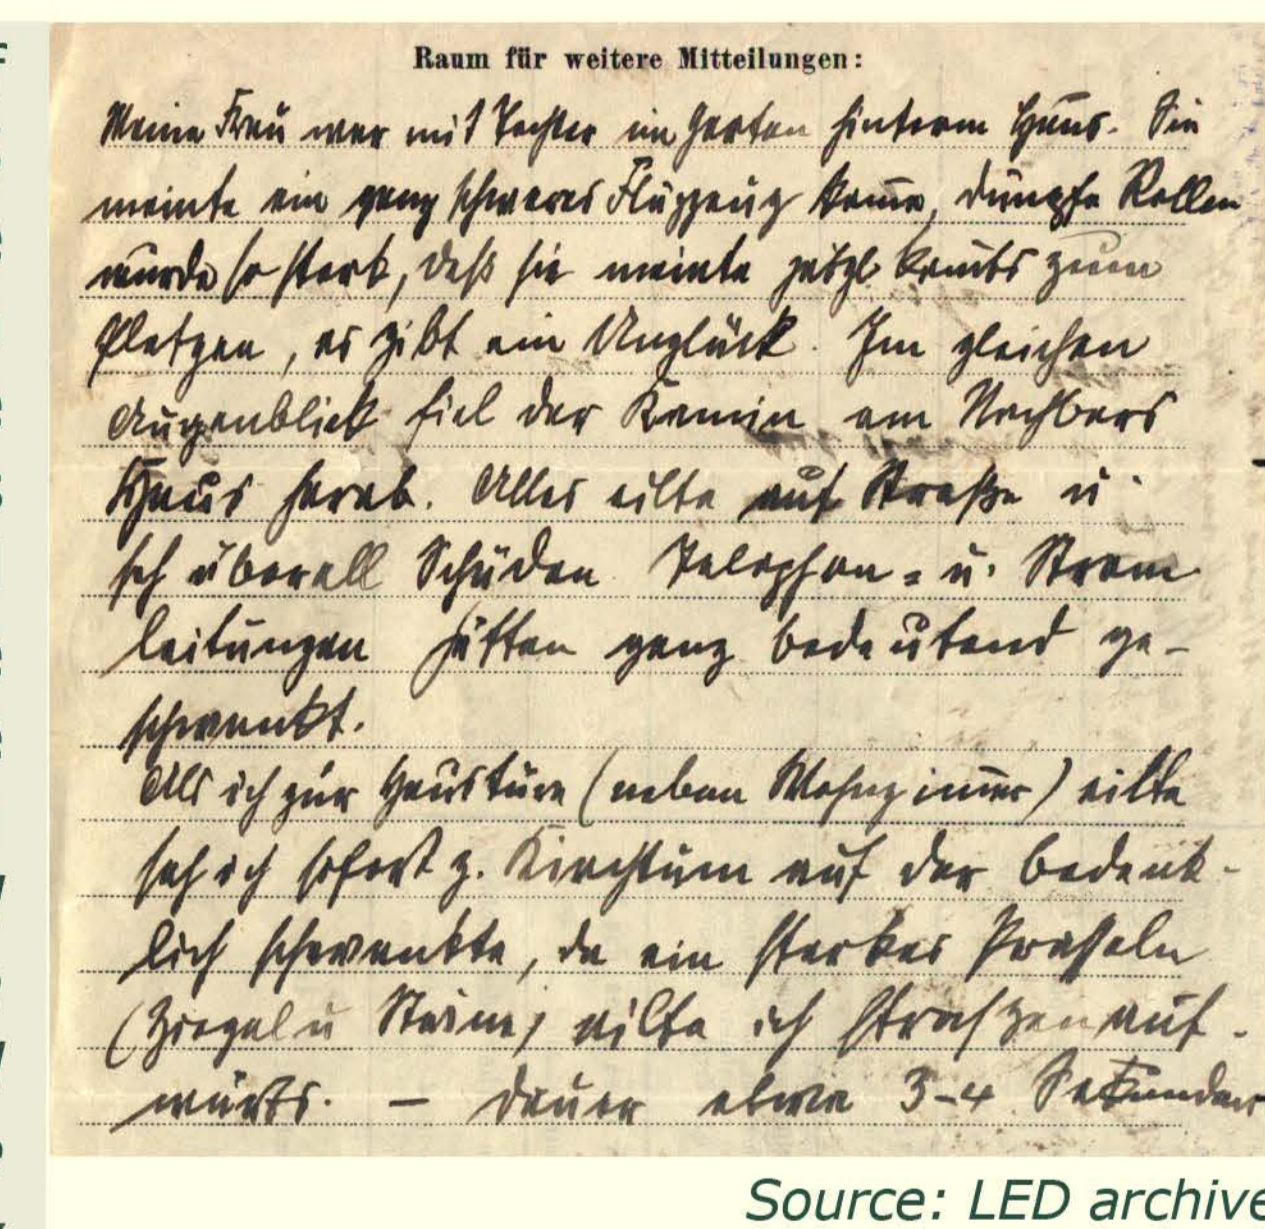 Raum für weitere Mitteilungen:
Meine Frau war mit Tochter im Garten hinterm Haus. Sie
meinte ein ganz schweres Flugzeug kom̄e, dumpfe Rollen
wurde so stark, daß sie meinte jetzt kom̄ts zum
Platzen, es gibt ein Unglück. Im gleichen
Augenblick fiel der Kamin am Nachbars
Haus herab. Alles eilte auf Straße u
sah überall Schäden Telephon = u. Strom
leitungen hätten ganz bedeutend ge-
schwankt.
Als ich zur Haustüre (neben Wohnzim̄er) eilte
sah ich sofort z. Kirchturm auf der bedenk-
lich schwankte, da ein starkes Prasseln
(Ziegel u Steine) eilte ich straßenauf-
wärts. – Dauer etwa 3-4 Sekunden
Source: LED archive